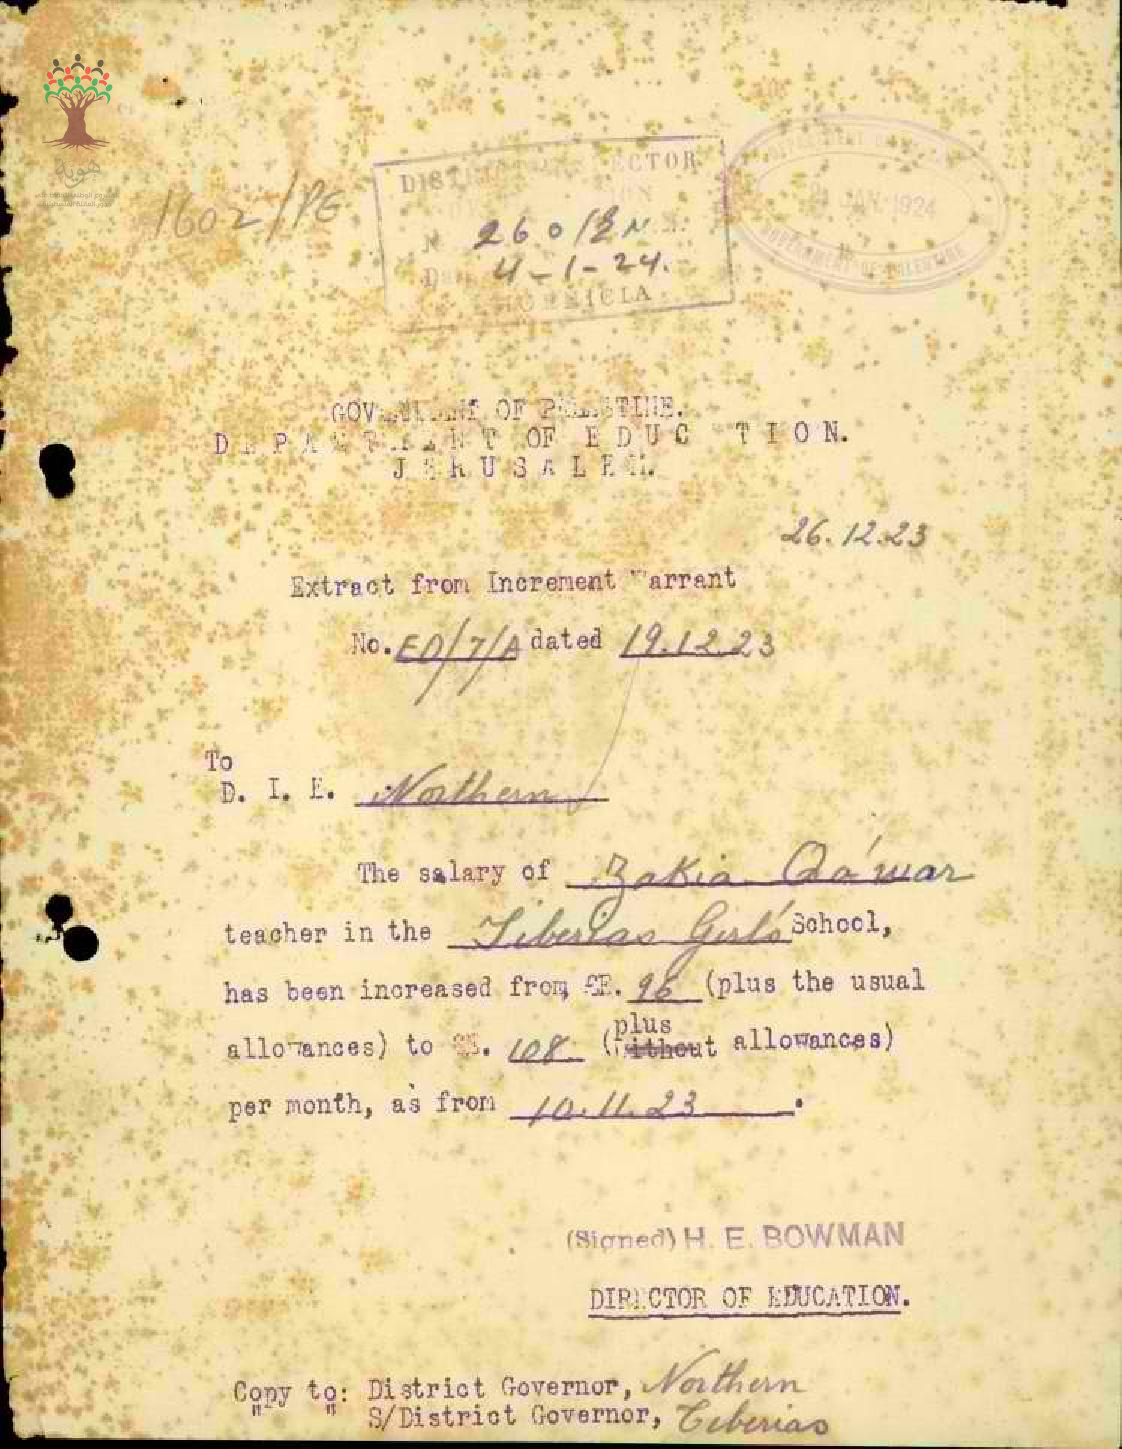 هوية
1602/PE
DISTRICT INSPECTOR
No 260/
Date 4-1-24.
PHOENICIA
JAN. 1924
GOVERNMENT OF PALESTINE
GOVERNMENT OF PALESTINE.
DEPARTMENT OF EDUCATION.
JERUSALEM.
26.12.23
Extract from Increment Warrant
No. ED/7/A dated 19.12.23
To
D. I. E. Northern
The salary of Zakia Qa'war
teacher in the Tiberias Girl's School,
has been increased from £E. 96 (plus the usual
plus
allowances) to £E. 108 (without allowances)
per month, as from 10.11.23.
(Signed) H. E. BOWMAN
DIRECTOR OF EDUCATION.
Copy to: District Governor, Northern
" " S/District Governor, Tiberias